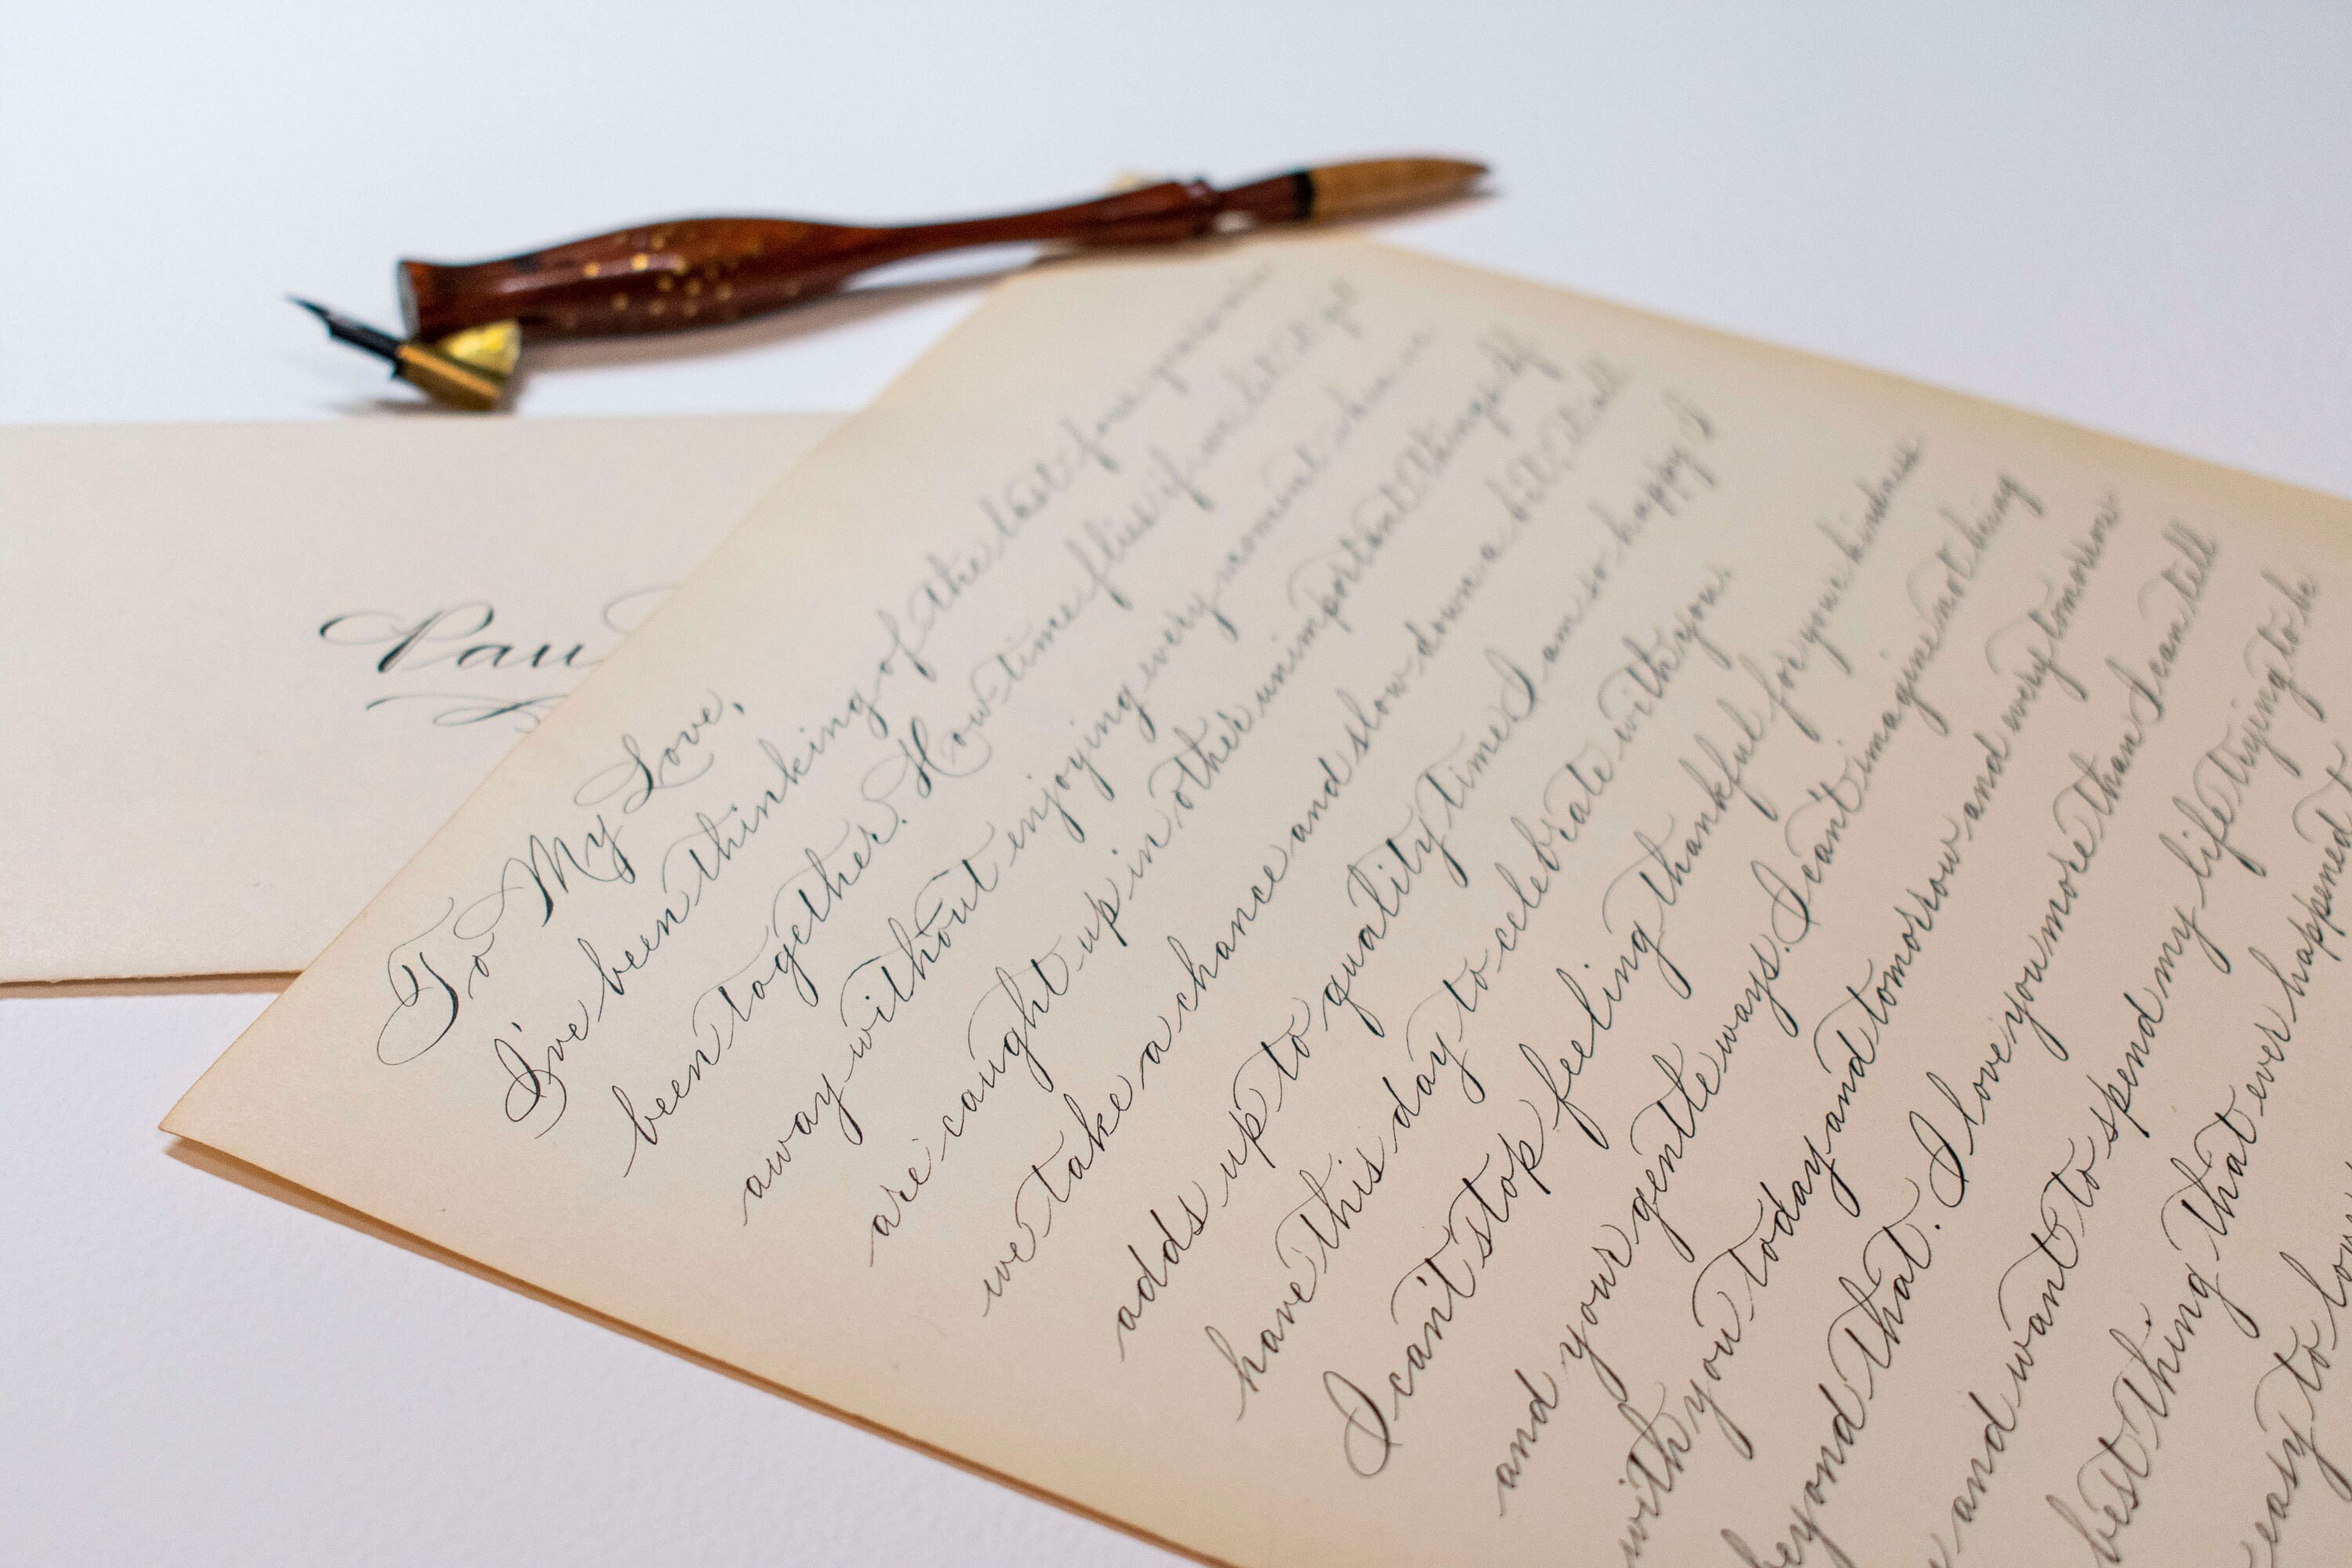 Pau
To My Love,
I've been thinking of the last four years we've
been together. How time flies if we let it go
away without enjoying every moment. Sure we
are caught up in other unimportant things if
we take a chance and slow down a bit, it all
adds up to quality time. I am so happy I
have this day to celebrate with you.
I can't stop feeling thankful for your kindness
and your gentle ways. I can't imagine not being
with you today and tomorrow and every tomorrow
beyond that. I love you more than I can tell
and want to spend my life trying to be
best thing that ever happened
easy to